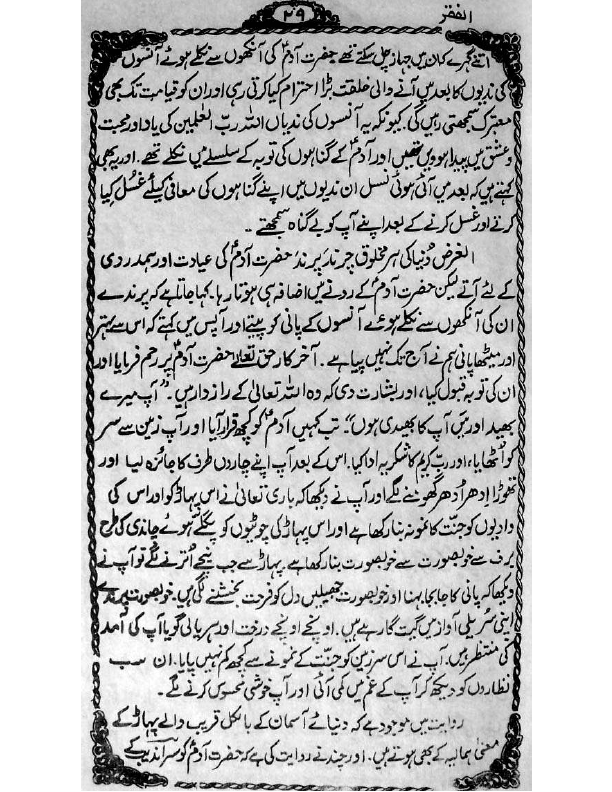 الفقر
۲۹
اتنے گہرے کہ ان میں جہاز چل سکتے تھے حضرت آدمؑ کی آنکھوں سے نکلے ہوئے آنسوں
کی ندیوں کا بعد میں آنے والی خلقت بڑا احترام کیا کرتی رہی اور ان کو قیامت تک بھی
متبرک سمجھتی رہیں گی۔ کیونکہ یہ آنسوں کی ندیاں اللہ ربّ العٰلمین کی یاد اور محبت
و عشق میں پیدا ہوویں تھیں اور آدمؑ کے گناہوں کی توبہ کے سلسلے میں نکلے تھے۔ اور یہ بھی
کہتے ہیں کہ بعد میں آئی ہوئی نسل ان ندیوں میں اپنے گناہوں کی معافی کیلئے غسُل کیا
کرتے اور غسل کرنے کے بعد اپنے آپ کو بے گناہ سمجھتے ۔۔
الغرض دُنیا کی ہر مخلوق چرند پرند حضرت آدمؑ کی عیادت اور ہمدردی
کے لئے آتے لیکن حضرت آدمؑ کے رونے میں اضافہ ہی ہوتا رہا۔ کہا جاتا ہے کہ پرندے
ان کی آنکھوں سے نکلے ہوئے آنسوں کے پانی کو پیتے اور آپس میں کہتے کہ اس سے بہتر
اور میٹھا پانی ہم نے آج تک نہیں پیا ہے۔ آخر کار حق تعلےٰ حضرت آدمؑ پر رحم فرمایا اور
ان کی توبہ قبول کیا، اور بشارت دی کہ وہ اللہ تعالیٰ کے راز دار ہیں۔ "آپ میرے
بھید اور میں آپ کا بھیدی ہوں"۔ تب کہیں آدمؑ کو کچھ قرار آیا اور آپ زمین سے سر
کو اُٹھایا، اور ربّ کریم کا شکریہ ادا کیا۔ اس کے بعد آپ اپنے چاروں طرف کا جائزہ لیا اور
تھوڑا اِدھر اُدھر گھومنے لگے اور آپ نے دیکھا کہ باری تعالیٰ نے اس پہاڑ کو اور اس کی
وادیوں کو جنّت کا نمونہ بنا رکھا ہے اور اس پہاڑ کی چوٹیوں کو پگلے ہوے چاندی کی طرح
برف سے خوبصورت سے خوبصورت بنا رکھا ہے۔ پہاڑ سے جب نیچے اُترنے لگے تو آپ نے
دیکھا کہ پانی کا جابجا بہنا اور خوبصورت جھیلیں دل کو فرحت بخشنے لگی ہیں۔ خوبصورت پرندے
اپنی سُریلی آواز میں گیت گا رہے ہیں۔ اونچے اونچے درخت اور ہریالی گویا آپ کی آمد
کی منتظر ہیں۔ آپ نے اس سر زمین کو جنّت کے نمونے سے کچھ کم نہیں پایا۔ ان سب
نظاروں کو دیکھ کر آپ کے غم میں کمی آئی اور آپ خوشی محسوس کرنے لگے۔
روایت میں موجود ہے کہ دنیا نے آسمان کے بالکل قریب والے پہاڑ کے
معنیٰ ہمالیہ کے بھی ہوتے ہیں۔ اور چند نے روایت کی ہے کہ حضرت آدمؑ کو سراندیب کے